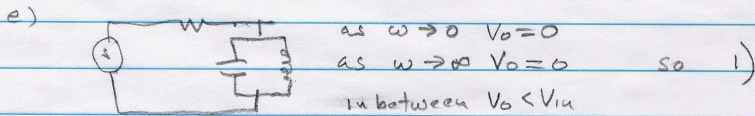 e) as ω→0 V₀=0
as ω→∞ V₀=0 so 1)
in between V₀<Vin